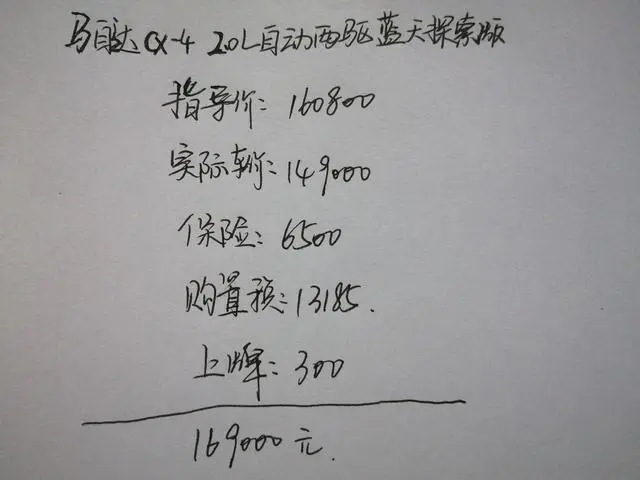 马自达CX-4 2.0L自动两驱蓝天探索版
指导价: 160800
实际车价: 149000
保险: 6500
购置税: 13185.
上牌: 300
169000元.